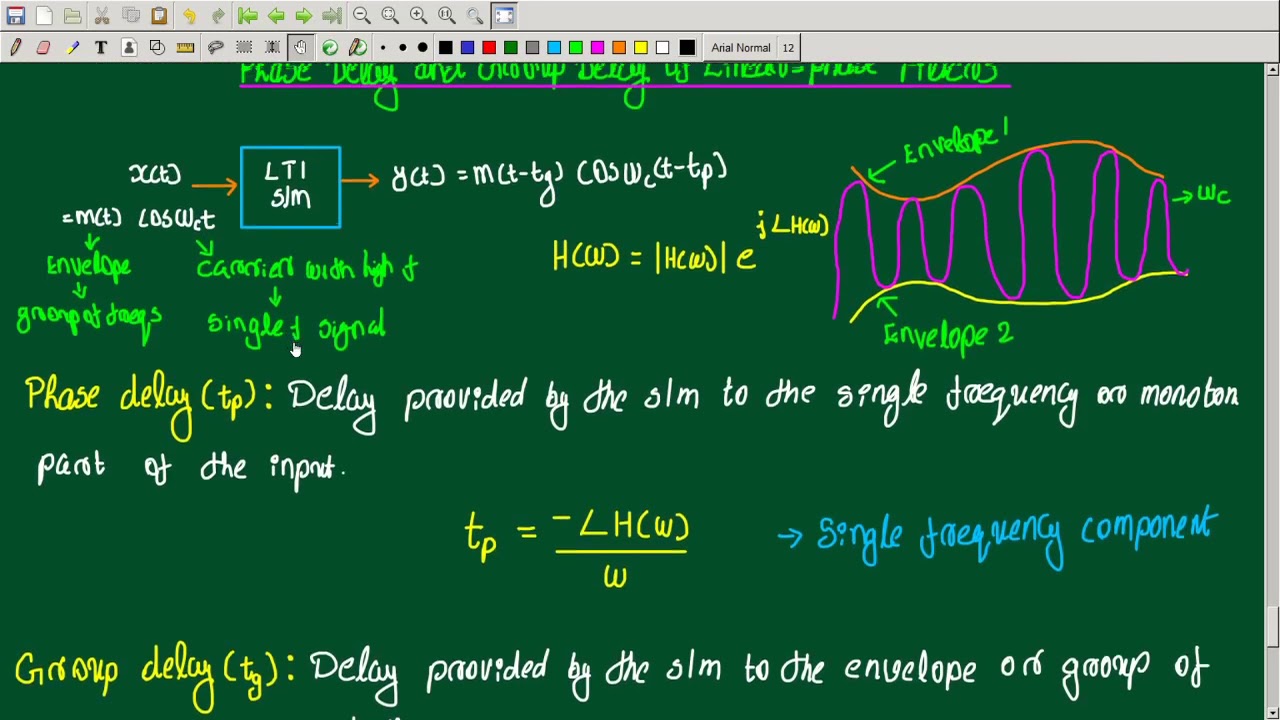 Arial Normal 12
Phase Delay and Group Delay of Linear-phase Filters
x(t)
LTI
s/m
y(t) = m(t-tg) cosωc(t-tp)
=m(t) cosωct
Envelope
group of freqs
carrier with high f
single f signal
H(ω) = |H(ω)| e^j∠H(ω)
Envelope 1
ωc
Envelope 2
Phase delay (tp): Delay provided by the s/m to the single frequency or monoton
part of the input.
tp = -∠H(ω)
ω
→ single frequency component
Group delay (tg): Delay provided by the s/m to the envelope or group of